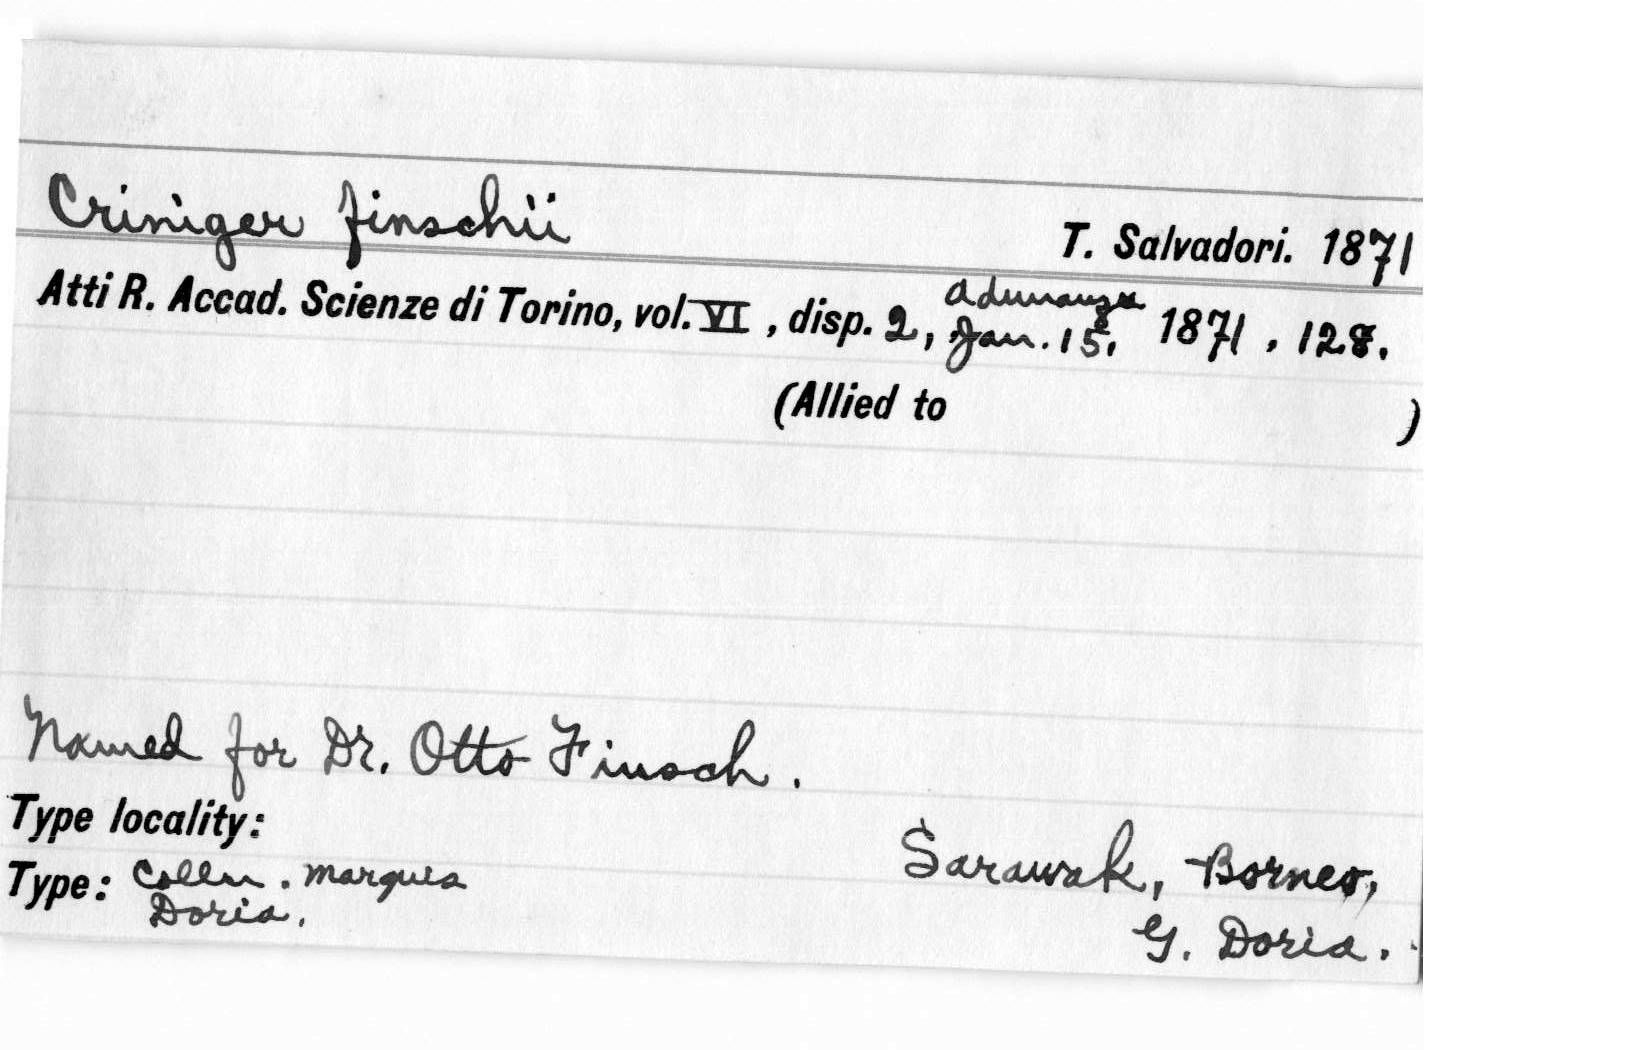 Criniger finschii
T. Salvadori. 1871
Atti R. Accad. Scienze di Torino, vol. VI , disp. 2, adunanza Jan. 15, 1871 , 128.
(Allied to )
Named for Dr. Otto Finsch.
Type locality:
Sarawak, Borneo,
Type: Colln. Marquis
Doria.
G. Doria.